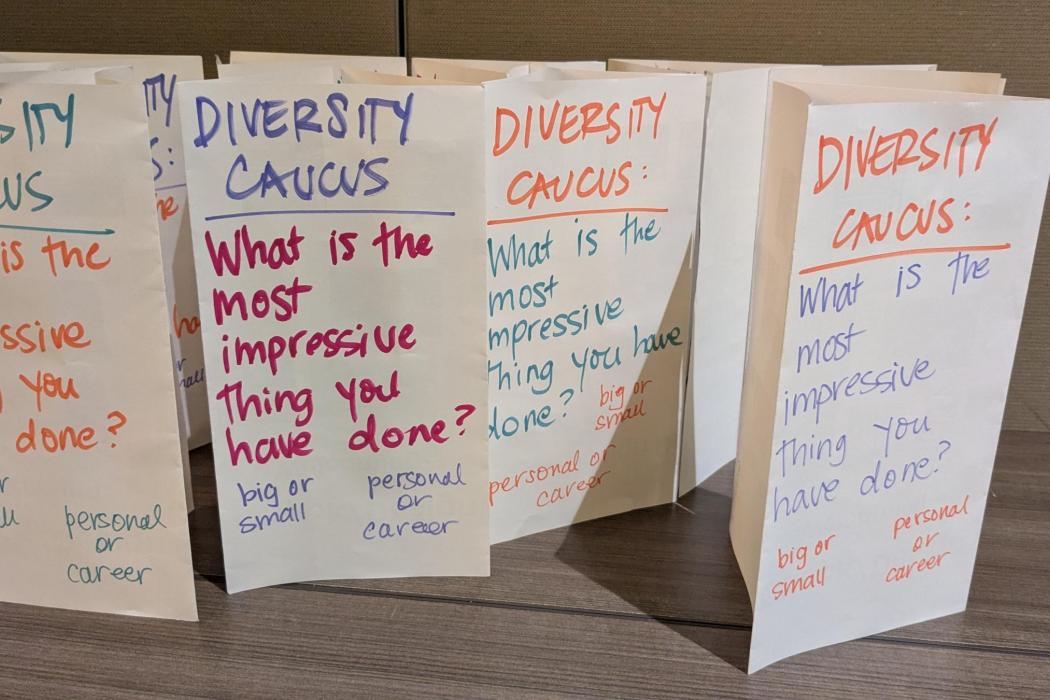 is the
you
done?
personal
or
career
DIVERSITY
CAUCUS
What is the
most
impressive
thing you
have done?
big or
small
personal
or
career
DIVERSITY
CAUCUS:
What is the
most
thing you have
done?
big or
small
personal or
career
DIVERSITY
CAUCUS:
What is the
most
impressive
thing you
have done?
big or
small
personal
or
career